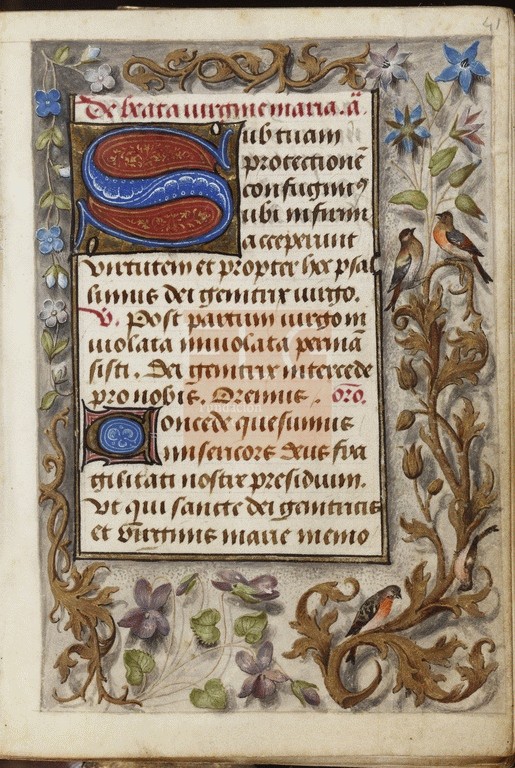 41
De beata uirgine maria. añ.
Sub tuam
protectionē
confugimꝰ
ubi infirmi
acceperunt
uirtutem et propter hec psal
limus dei genitrix uirgo.
V. Post partum uirgo in
uiolata inuiolata permā
sisti. Dei genitrix intercede
pro nobis. Oremus. oro.
Concede quesumus
misericors deus fra
gilitati nostre presidium.
Vt qui sancte dei genitricis
et virginis marie memo
Fundación